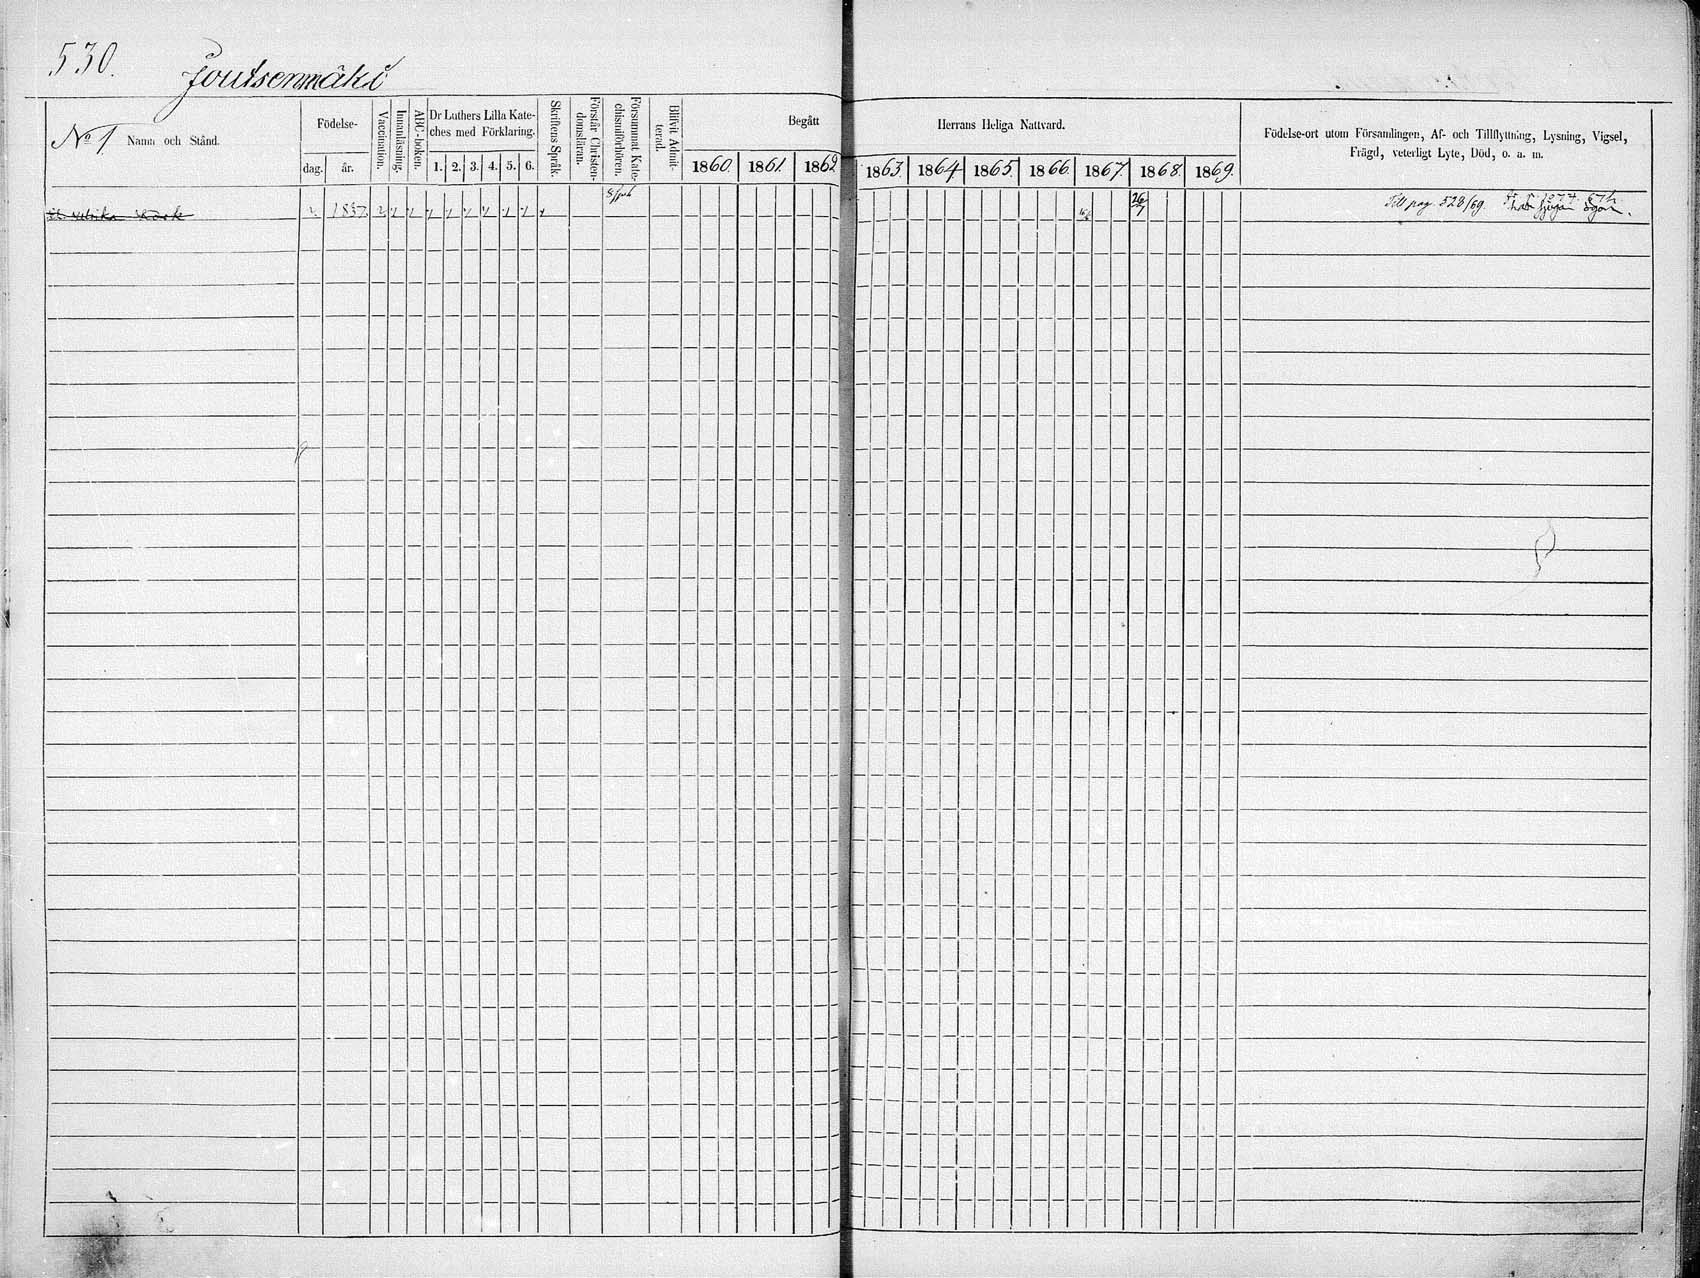 530.
Joutsenmäki
No 1. Namn och Stånd.
Födelse-
dag. år.
Vaccination.
Innanläsning.
ABC-boken.
Dr Luthers Lilla Kate-
ches med Förklaring.
1. 2. 3. 4. 5. 6.
Skriftens Språk.
Förstår Christen-
domsläran.
Försummat Kate-
chismiförhören.
Blifvit Admit-
terad.
Begått
1860. 1861. 1862
Herrans Heliga Nattvard.
1863. 1864 1865. 1866. 1867 1868. 1869.
Födelse-ort utom Församlingen, Af- och Tillflyttning, Lysning, Vigsel,
Frägd, veterligt Lyte, Död, o. a. m.
Ulrika 1837. 26/7 Till pag. 528/69.